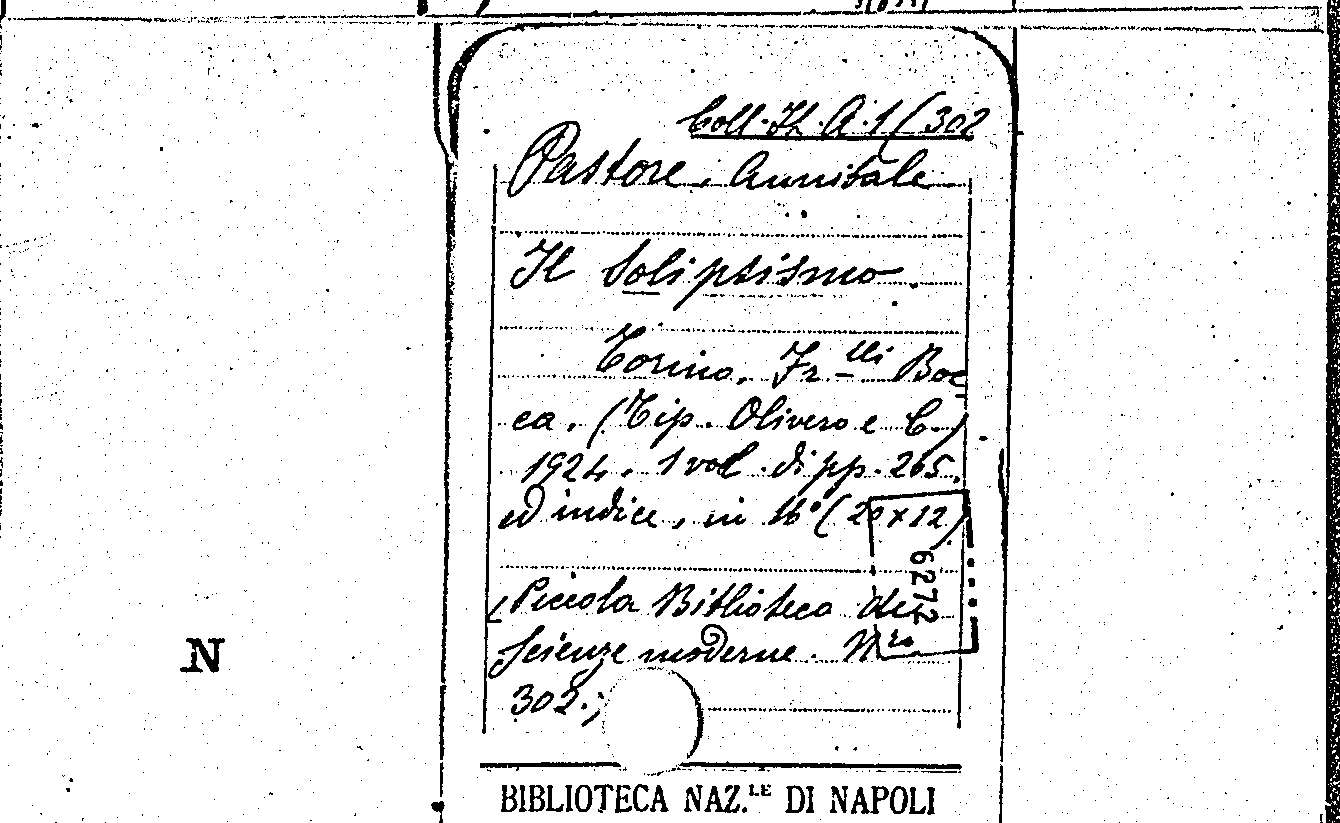 Coll. It. A. 1/302
Pastore, Annibale
Il Solipsismo.
Torino, Fr.lli Boc
ca. (Tip. Olivero e C.)
1924. 1 vol. di pp. 265.
ed indice, in 16° (20x12)
6272
(Piccola Biblioteca di
Scienze moderne. Nro
302.;
N
BIBLIOTECA NAZ.LE DI NAPOLI